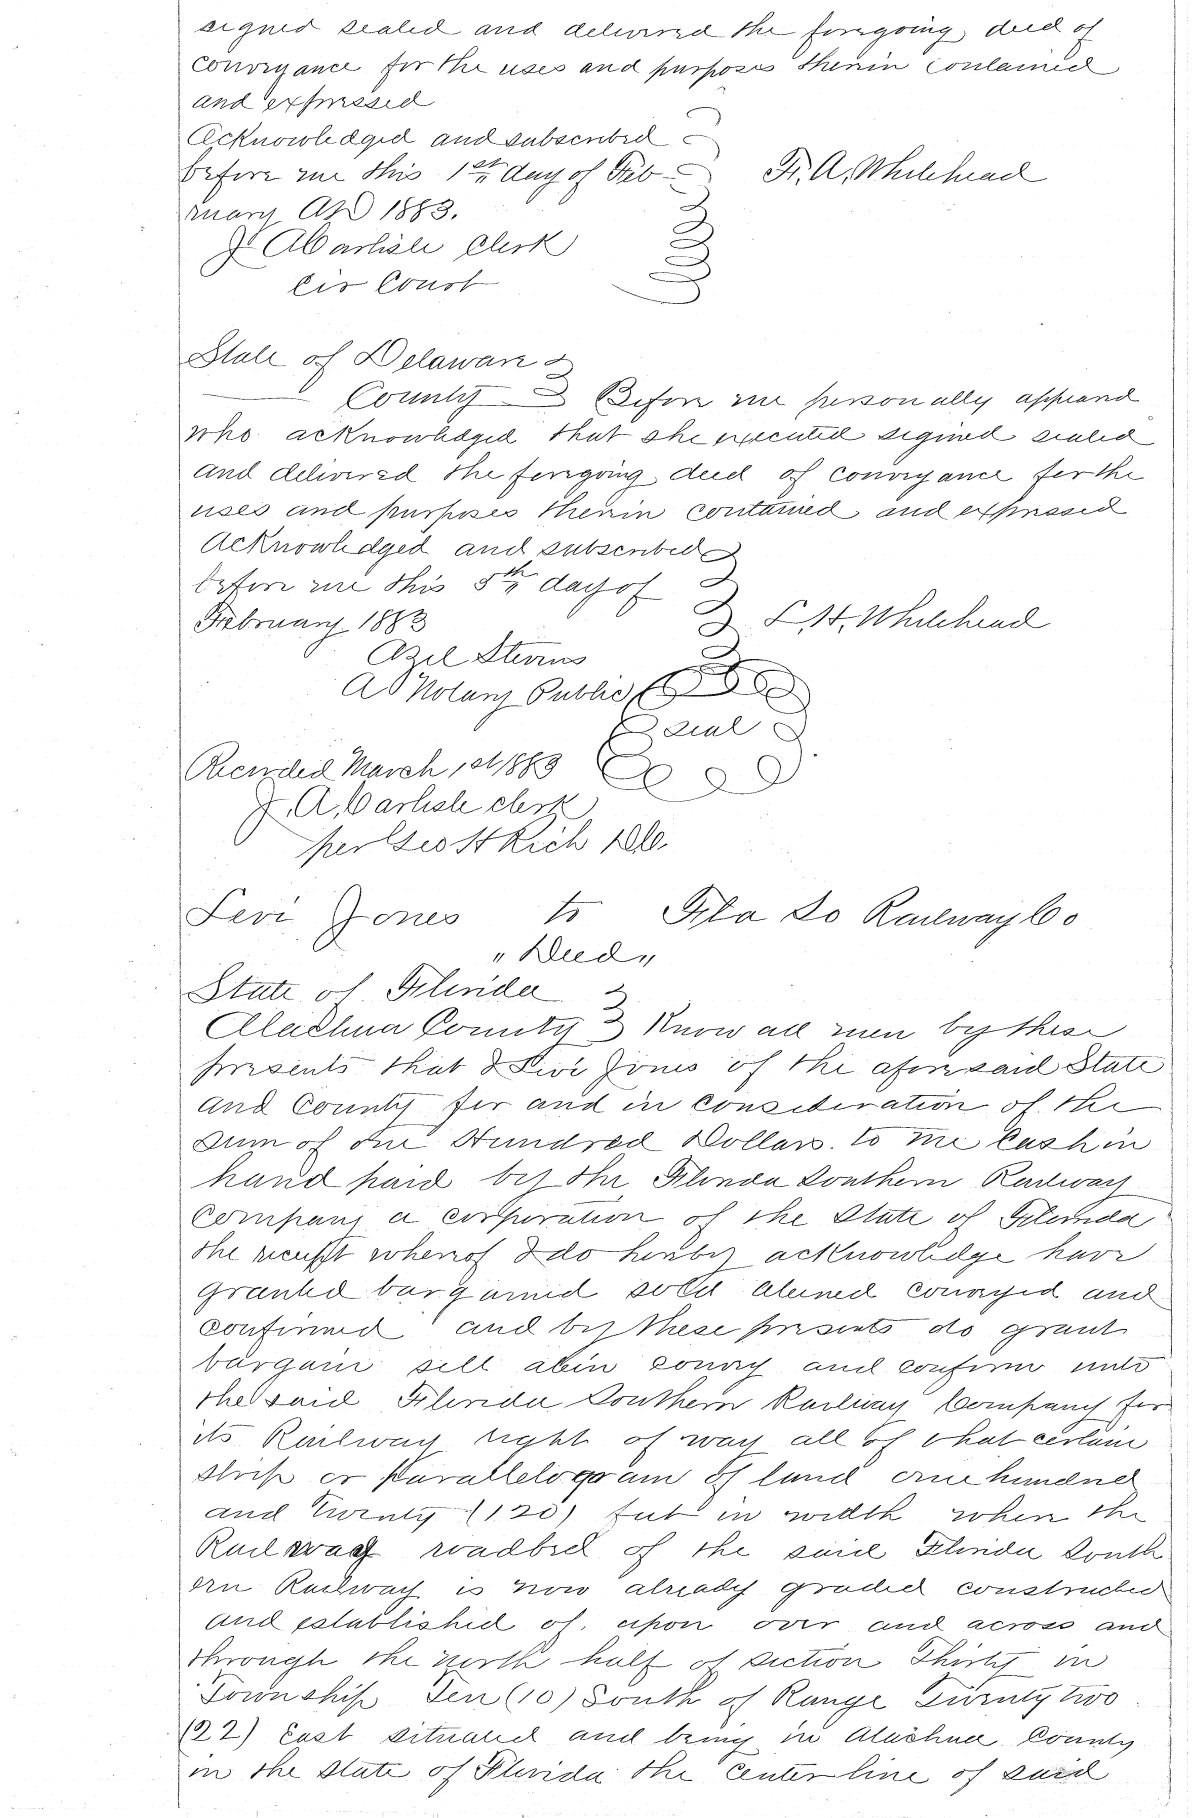 signed sealed and delivered the foregoing deed of
conveyance for the uses and purposes therein contained
and expressed
Acknowledged and subscribed
before me this 1st day of Feb- F. A. Whitehead
ruary AD 1883.
J A Carlisle Clerk
Cir Court
State of Delaware
County Before me personally appeard
who acknowledged that she executed signed sealed
and delivered the foregoing deed of conveyance for the
uses and purposes therein contained and expressed
Acknowledged and subscribed
before me this 5th day of
February 1883 L. H. Whitehead
Azel Stevens
A Notary Public
seal
Recorded March 1st 1883
J. A. Carlisle clerk
per Geo H Rich D.C.
Levi Jones to Fla So Railway Co
"Deed"
State of Florida
Alachua County Know all men by these
presents that I Levi Jones of the aforesaid State
and County for and in consideration of the
sum of one Hundred Dollars. to me Cash in
hand paid by the Florida Southern Railway
Company a corporation of the State of Florida
the receipt whereof I do hereby acknowledge have
granted bargained sold aliened conveyed and
confirmed and by these presents do grant
bargain sell alien convey and confirm unto
the said Florida Southern Railway Company for
its Railway right of way all of that certain
strip or parallelogram of land one hundred
and Twenty (120) feet in width when the
Railway roadbed of the said Florida South
ern Railway is now already graded constructed
and established of. upon over and across and
through the north half of Section Thirty in
Township Ten (10) South of Range Twenty two
(22) East situated and being in Alachua County
in the State of Florida the center line of said